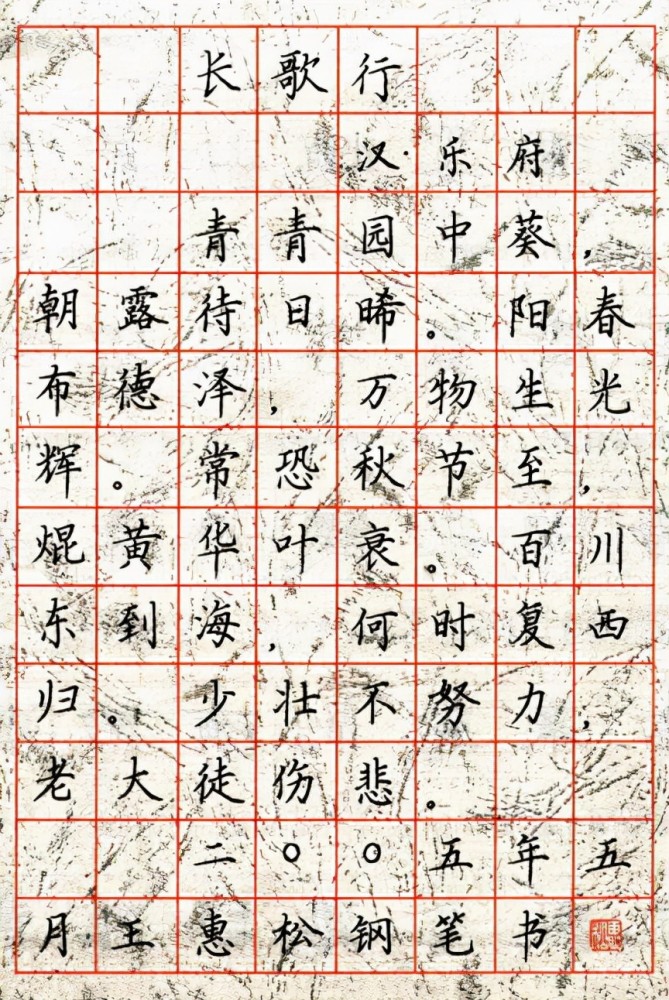 长歌行
汉·乐府
青青园中葵，
朝露待日晞。阳春
布德泽，万物生光
辉。常恐秋节至，
焜黄华叶衰。百川
东到海，何时复西
归。少壮不努力，
老大徒伤悲。
二〇〇五年五
月王惠松钢笔书